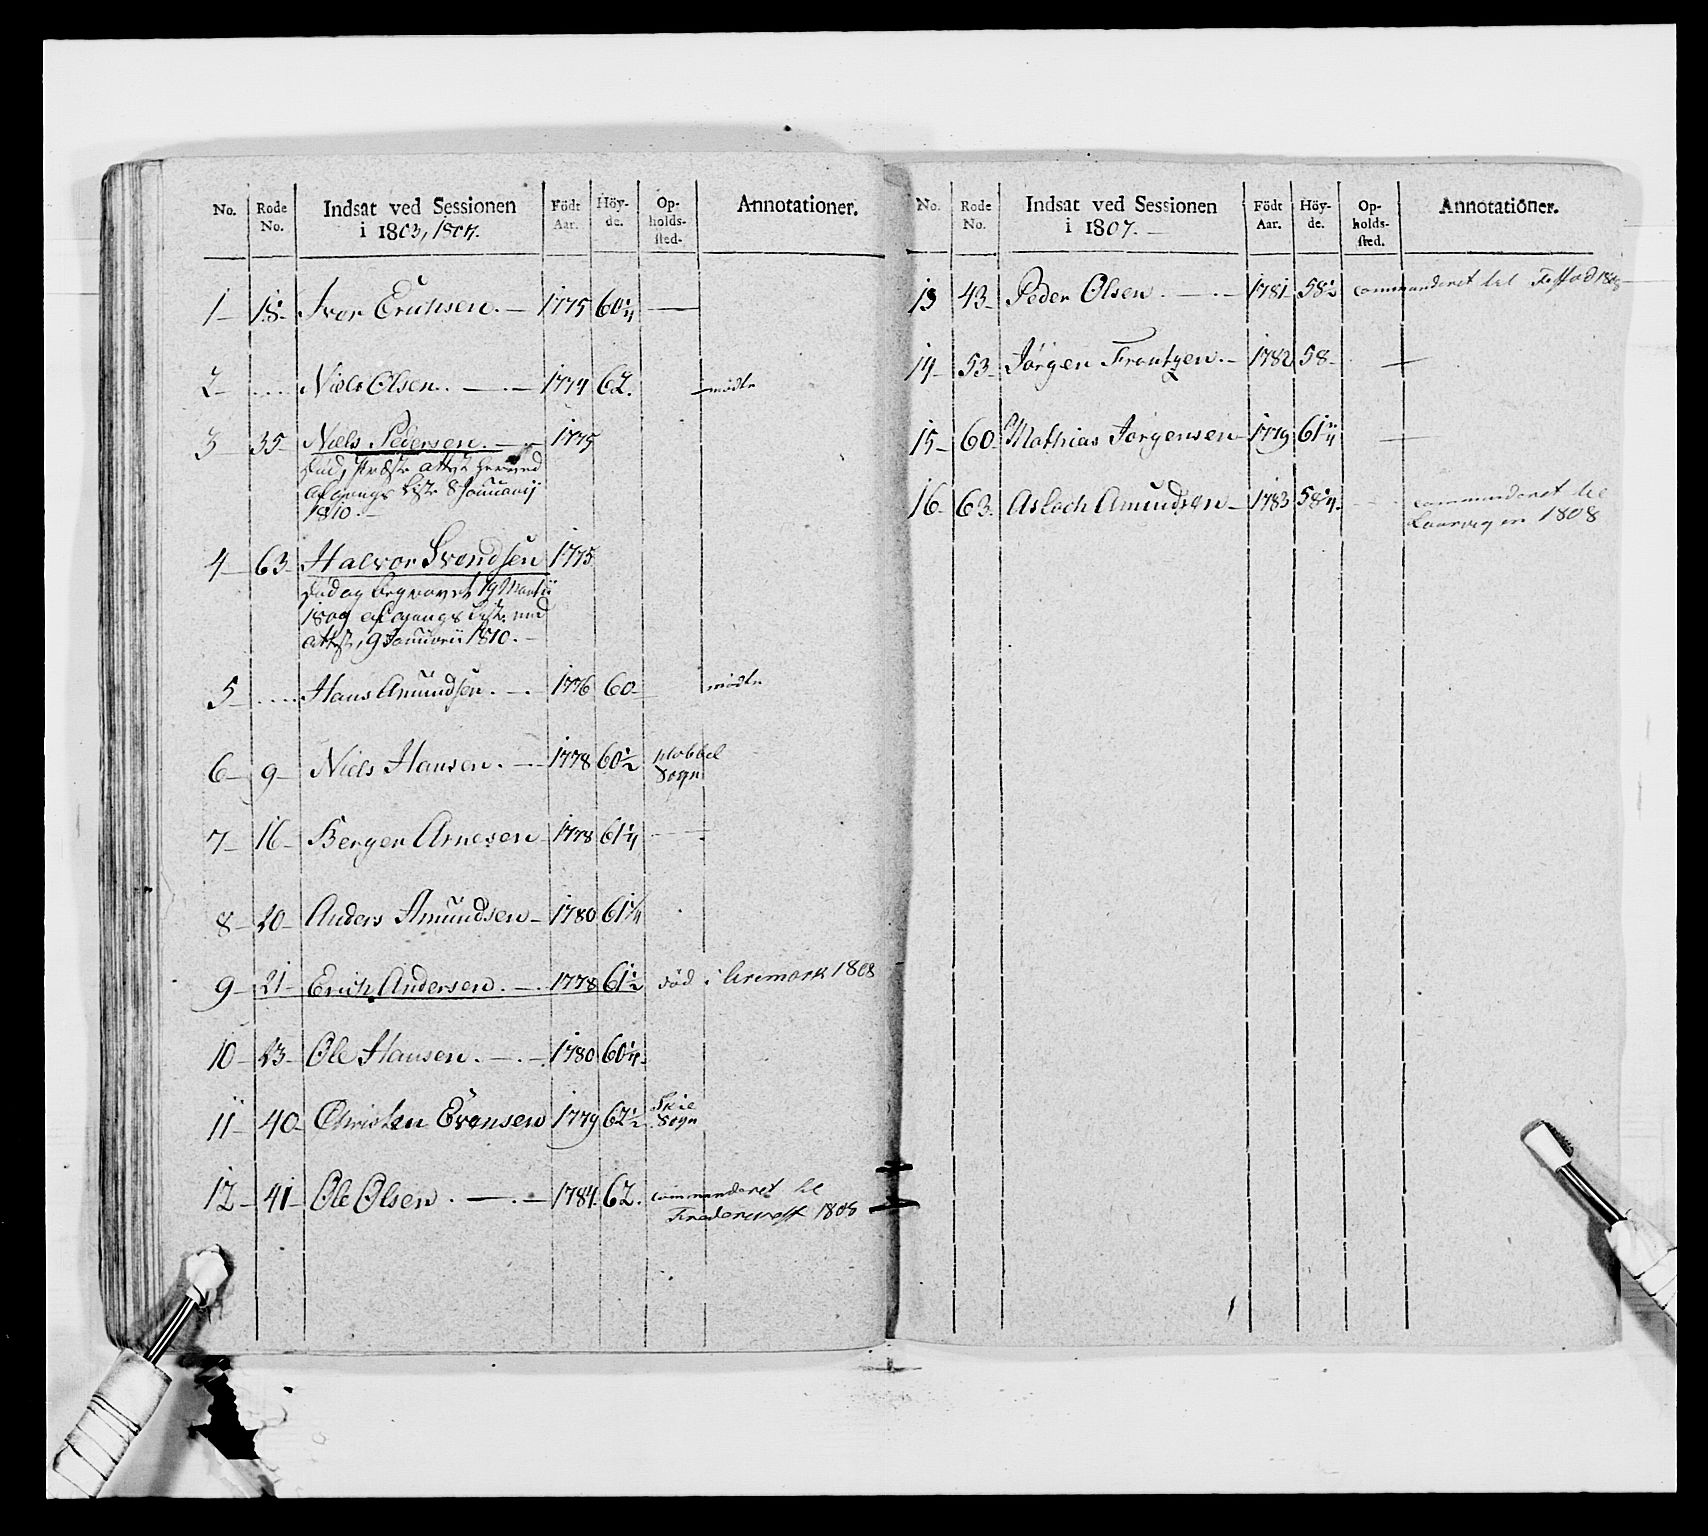 No. Rode No. Indsat ved Sessionen i 1803, 1804. Födt Aar. Höyde. Opholdssted. Annotationer.
1 18 Ivor Erichsen. 1775 60 1/4
2 Niels Olsen. 1774 62. mödte
3 35 Niels Pedersen. 1775
död, Præste attst
afgangs Liste 8 Januarij
1810.
4 63 Halvor Svendsen 1775
död og begravet 19 Martii
1809 afgangs Liste med
attst, 9 Januarii 1810.
5 Hans Amundsen. 1776 60 mödte
6 9 Niels Hansen. 1778 60 1/2
Sogn
7 16 Berger Arnesen 1778 61 1/4
8 20 Anders Amundsen 1780 61 1/4
9 21 Erich Andersen. 1778 61 1/2 död i Aremark 1808
10 23 Ole Hansen. 1780 60 1/4
11 40 Christen Evensen 1779 62 1/2 Skie
Sogn
12 41 Ole Olsen. 1784 62. commanderet til
1808
No. Rode No. Indsat ved Sessionen i 1807. Födt Aar. Höyde. Opholdssted. Annotationer.
13 43 Peder Olsen. 1781 58 1/2 commanderet til 1808
14 53 Jörgen Frantzen. 1782 58
15 60 Mathias Jörgensen 1779 61 1/4
16 63 Asloch Amundsen 1783 58 1/4 commanderet til
Laurvigen 1808